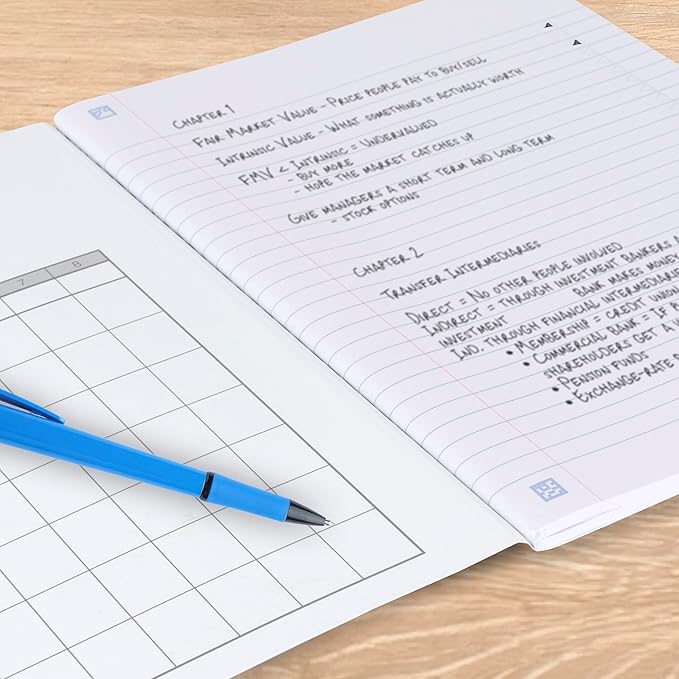 CHAPTER 1
FAIR MARKET VALUE - PRICE PEOPLE PAY TO BUY/SELL
INTRINSIC VALUE - WHAT SOMETHING IS ACTUALLY WORTH
FMV < INTRINSIC = UNDERVALUED
- BUY MORE
- HOPE THE MARKET CATCHES UP
GIVE MANAGERS A SHORT TERM AND LONG TERM
- STOCK OPTIONS
CHAPTER 2
TRANSFER INTERMEDIARIES
DIRECT = NO OTHER PEOPLE INVOLVED
INDIRECT = THROUGH INVESTMENT BANKERS
INVESTMENT BANK MAKES MONEY
IND. THROUGH FINANCIAL INTERMEDIARIES
• MEMBERSHIP = CREDIT UNION
• COMMERCIAL BANK = IF
SHAREHOLDERS GET A
• PENSION FUNDS
• EXCHANGE-RATE
7 8